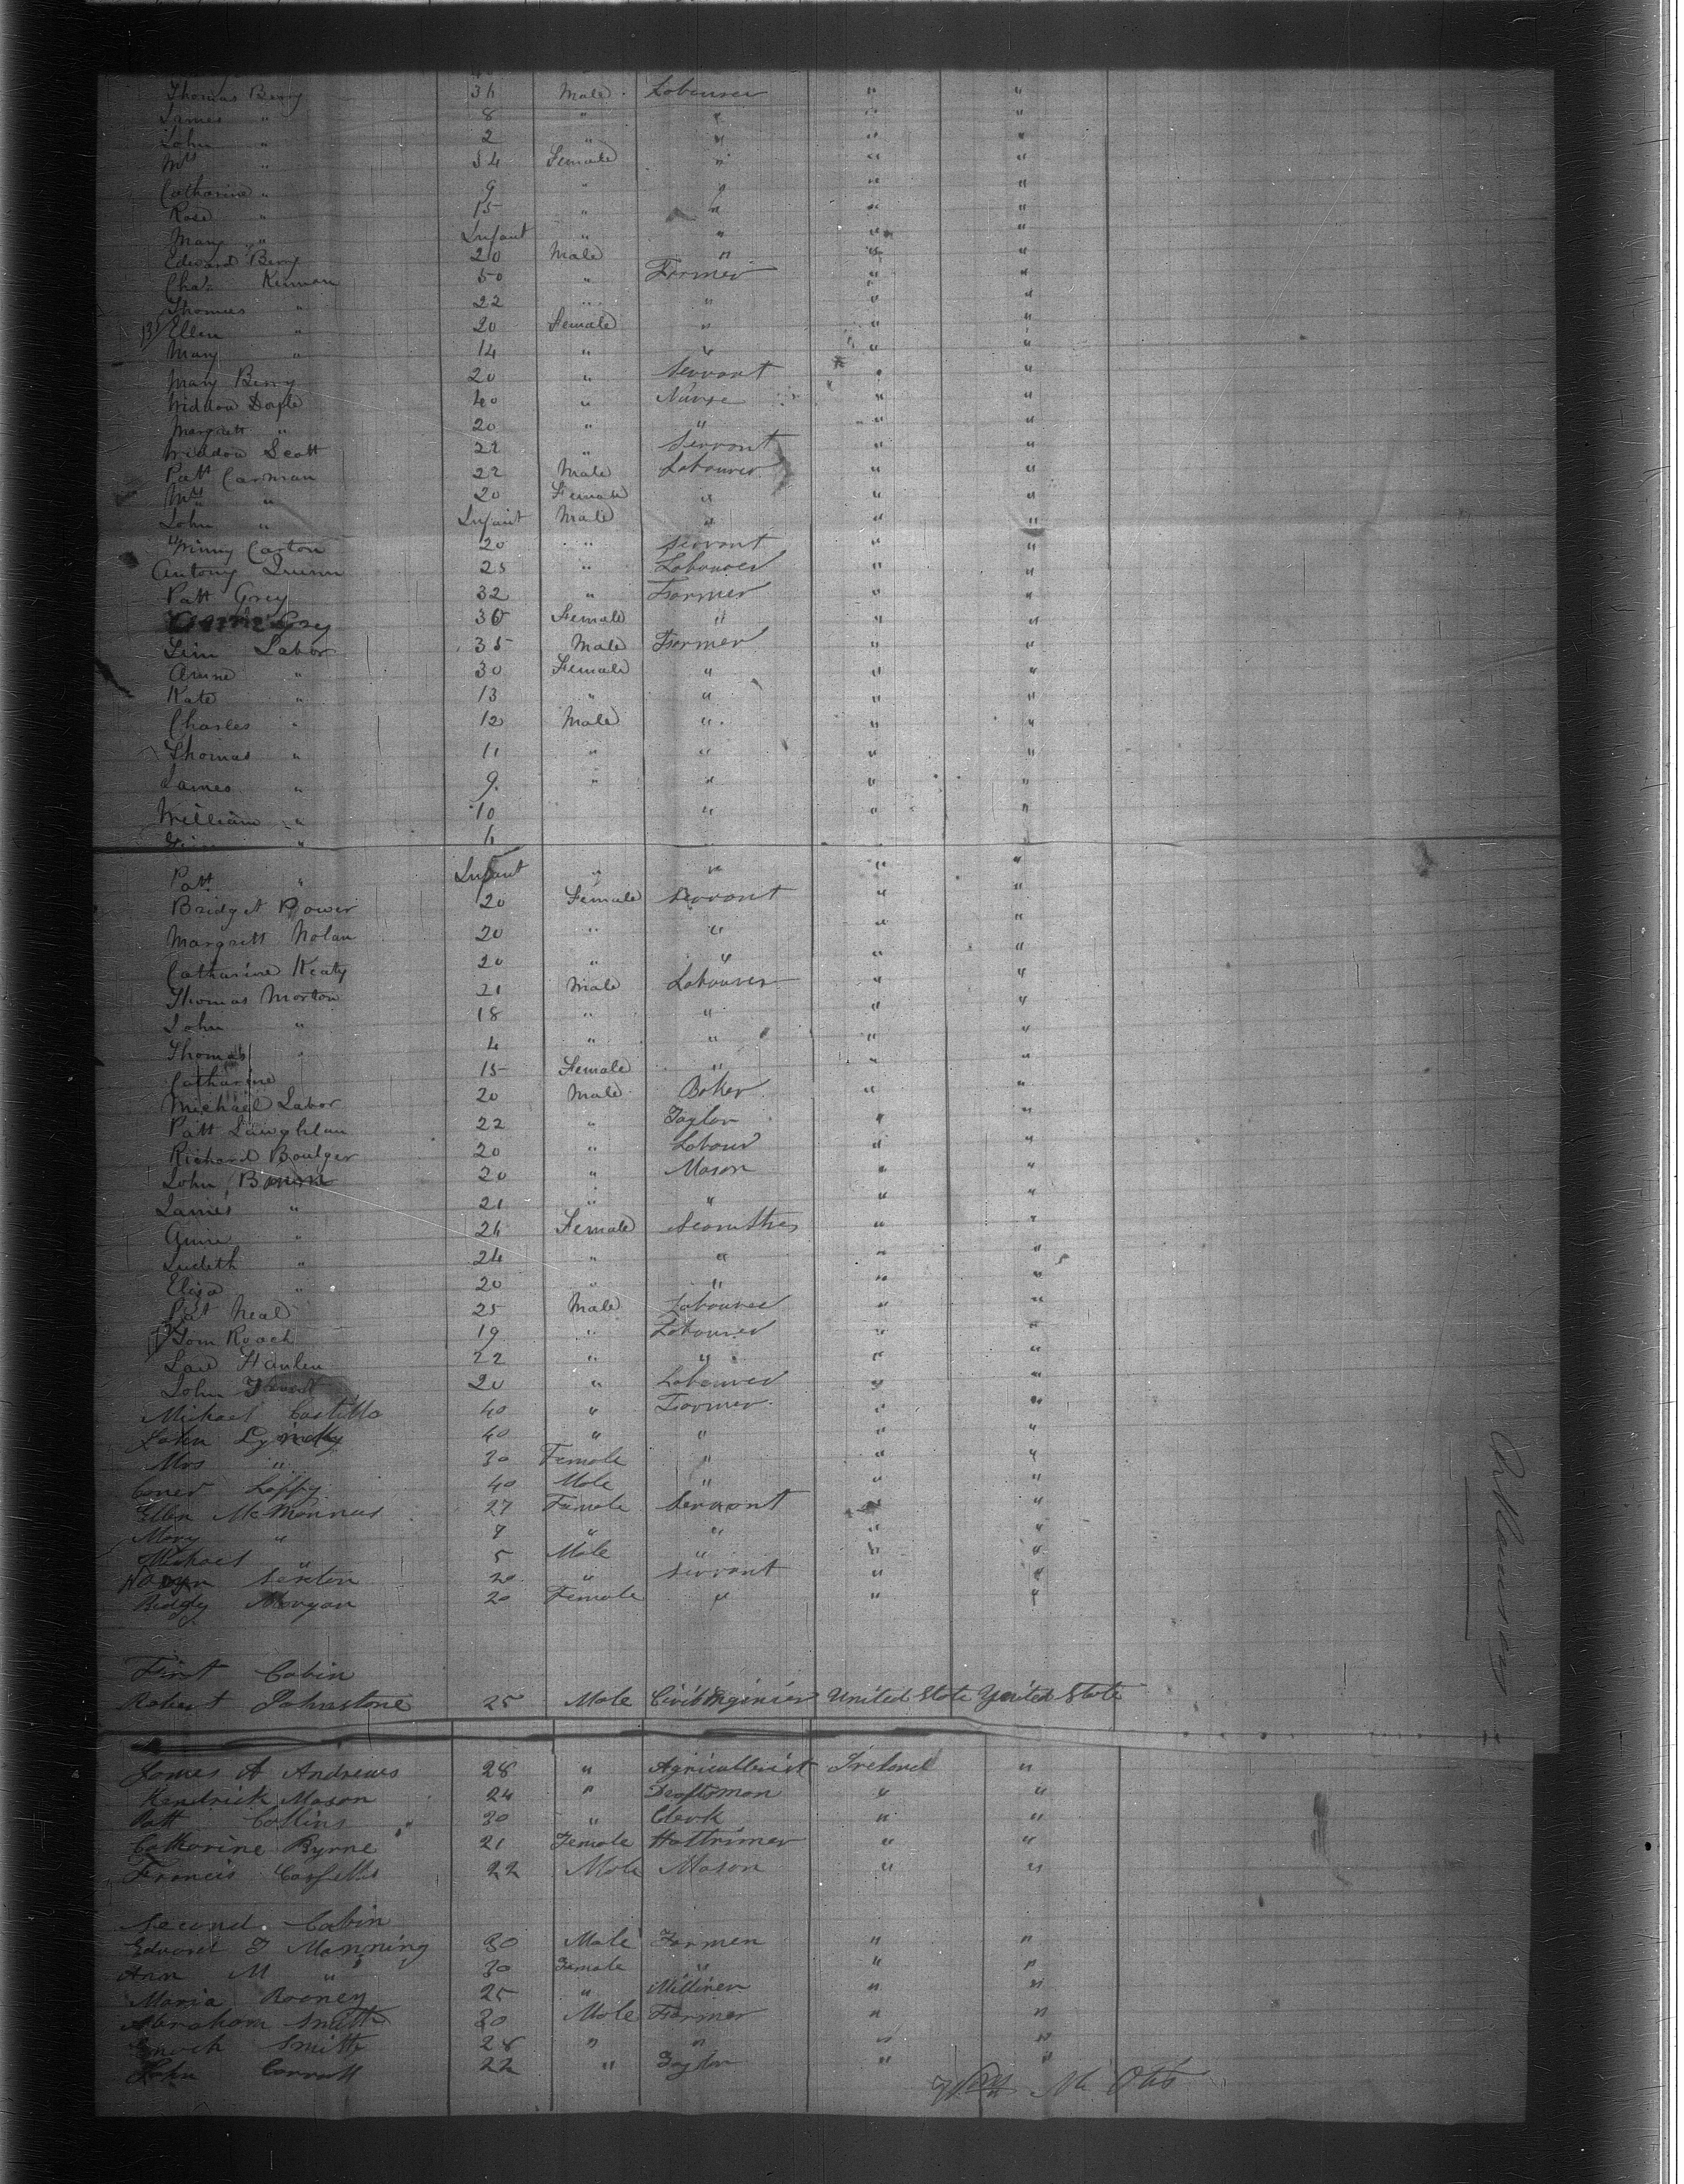 Thomas Berry 36 Male Labourer " "
James " 8 " " " "
John " 2 " " " "
Mrs " 34 Female " " "
Catharine " 9 " " " "
Rose " 15 " " " "
Mary " Infant " " " "
Edward Berry 20 Male " " "
Chas. Kinnan 50 " Farmer " "
Thomas " 22 " " " "
Ellen " 20 Female " " "
Mary " 14 " " " "
Mary Berry 20 " Servant " "
Widdow Doyle 40 " Nurse " "
Margrett " 20 " " " "
Widdow Scott 22 " Servant " "
Patt Carman 22 Male Labourer " "
Mrs " 20 Female " " "
John " Infant Male " " "
Winny Carton 20 " Servant " "
Antony Quinn 25 " Labourer " "
Patt Grey 32 " Farmer " "
Grey 30 Female " " "
Jim Labor 35 Male Farmer " "
Anne " 30 Female " " "
Kate " 13 " " " "
Charles " 12 Male " " "
Thomas " 11 " " " "
James " 9 " " " "
William " 10 " " "
" 4
Patt " Infant " " " "
Bridget Power 20 Female Servant " "
Margrett Nolan 20 " " " "
Catharine Keaty 20 " " " "
Thomas Morton 21 Male Labourer " "
John " 18 " " " "
Thomas " 4 " " " "
Catharine 15 Female " " "
Michael Labor 20 Male Baker " "
Patt Laughlan 22 " Taylor " "
Richard Boulger 20 " Labour " "
John 20 " Mason " "
James " 21 " " " "
Anne " 26 Female Seamstres " "
Judeth " 24 " " " "
Eliza " 20 " " " "
Pat Neal 25 Male Labourer " "
Tom Roach 19 " Labourer " "
Law Hanlen 22 " " " "
John 20 " Labourer " "
Michael Castillo 40 " Farmer " "
John 40 " " " "
Mrs " 30 Female " " "
Laffy 40 Male " " "
Ellen McMannus 27 Female Servant " "
Mary " 7 " " " "
Michael " 5 Male " " "
Sexton 20 " Servant " "
Bidgy Morgan 20 Female " " "
Arkansas
First Cabin
Robert Johnstone 25 Male Civil Enginier United State United State
James A Andrews 28 " Agricultirist Ireland "
Kendrick Mason 24 " Draftsman " "
Patt Collins 30 " Clerk " "
Catharine Byrne 21 Female Hattrimer " "
Francis 22 Male Mason " "
Second Cabin
Edward J Manning 30 Male Farmer " "
Ann M " 30 Female " " "
Maria Rooney 25 " Milliner " "
Abraham Smith 30 Male Farmer " "
Enoch Smith 28 " " " "
John Carroll 22 " Taylor " "